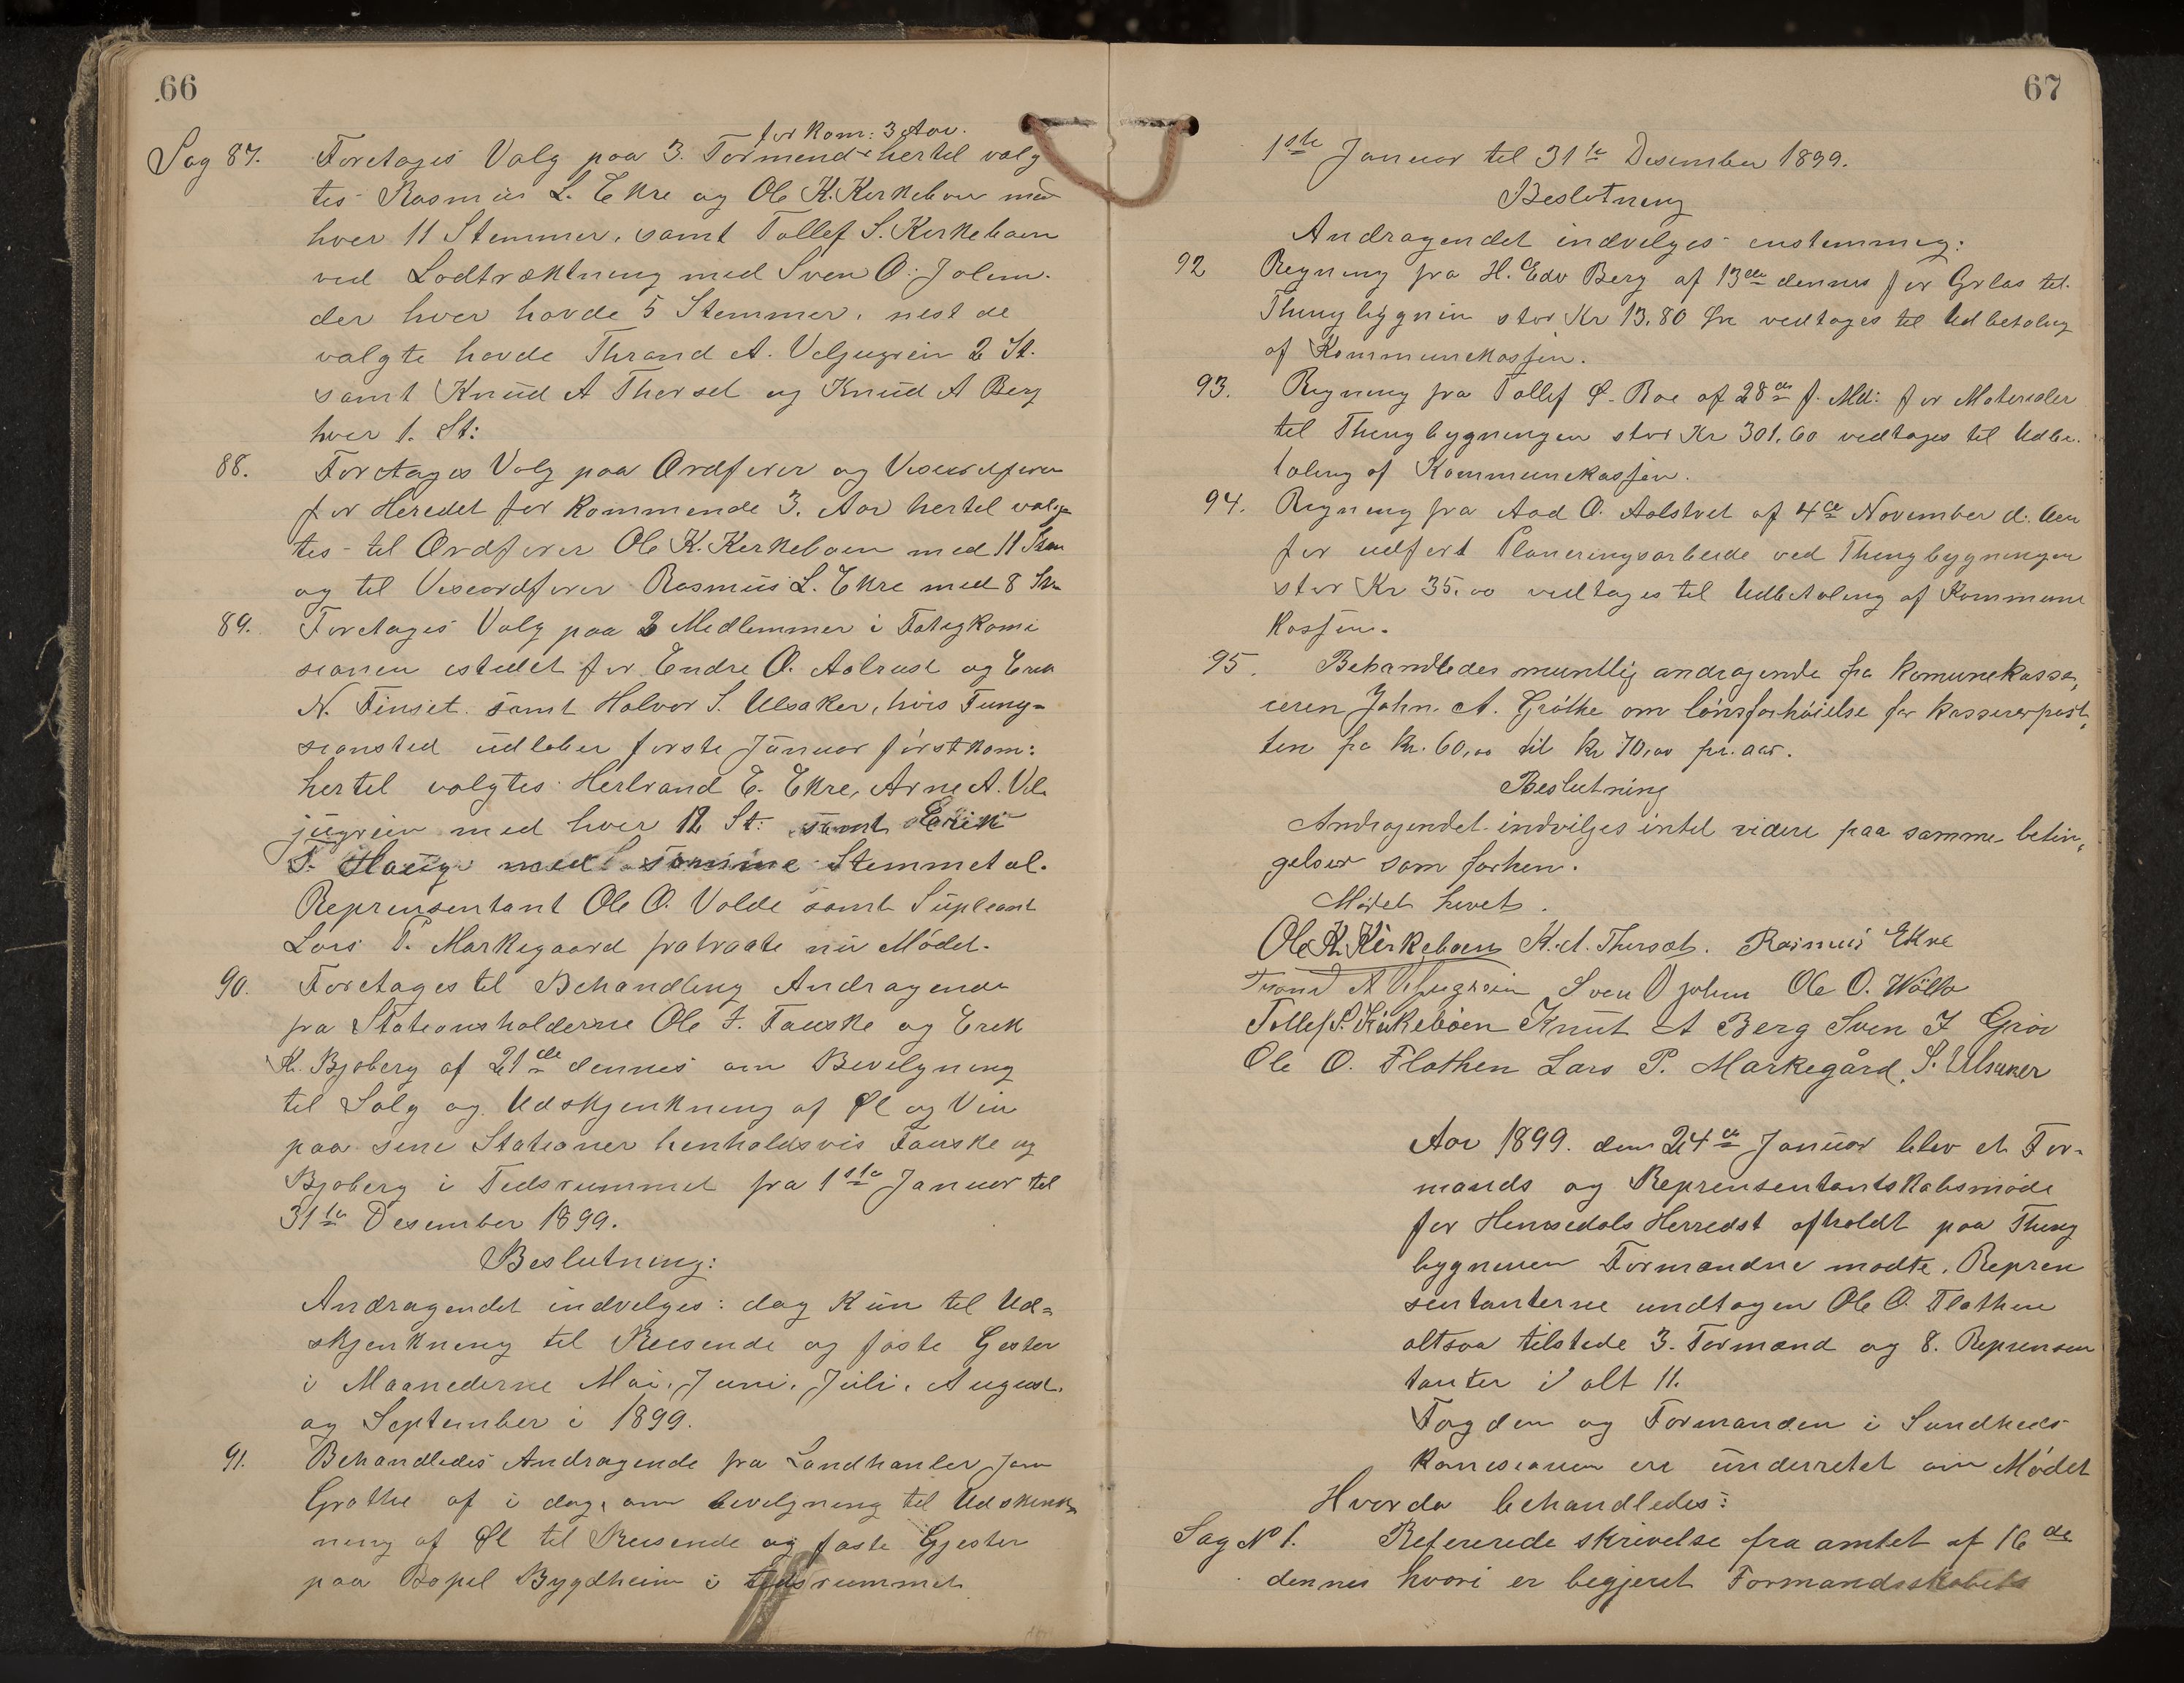 66
for kom: 3 Aar.
Sag 87. Foretages Valg paa 3. Formend hertel valg
tes Rasmus L. Ekre og Ole K. Kerkeboen med
hver 11 Stemmer, samt Tollef S. Kerkeboen
ved Lodtræktneng med Sven O. Jolem.
der hver havde 5 Stemmer, nest de
valgte havde Thrand A. Veljugrein 2 St.
samt Knud A Thorset og Knud A Berg
hver 1. St:
88. Foretages Valg paa Ordferer og Viseordferer
for Heredet for kommende 3. Aar hertel valg-
tes til Ordferer Ole K. Kerkeboen med 11 Stem
og til Viseordferer Rasmus L. Ekre med 8 Stm
89. Foretages Valg paa 3 Medlemmer i Fatigkomi
sionen istedet for Endre O. Aalrust og Erek
N. Finset samt Halvor S. Ulsaker, hvis Fung-
sionsted udlober forste Januar førstkom:
hertel valgtes Herbrand E. Ekre, Arne A. Vel
jugrein med hver 12 St: samt Erik
T. Haug med samme Stemmetal.
Reprensentant Ole O. Volde samt Supleant
Lars P. Markegaard fratraate nu Mødet.
90. Foretages tel Behandleng Andragende
fra Stationsholderne Ole T. Fauske og Erek
K. Bjoberg af 21de dennes om Bevelgneng
til Salg og Udskjenkneng af Øl og Vin
paa sene Stationer henholdsvis Fauske og
Bjoberg i Tedsrummet fra 1ste Januar tel
31te Desember 1899.
Beslutneng:
Andragendet indvelges: dog kun til Ud-
skjenkneng til Reesende og faste Gester
i Maanederne Mai, Juni, Juli, August,
og September i 1899.
91. Behandledes Andragende fra Landhanler Jon
Grøthe af i dag, om bevelgneng til Udskenk-
neng af Øl til Reesende og faste Gjester
paa Bopel Bygdheim i tedsrummet
67
1ste Januar til 31te Desember 1899.
Beslutneng
Andragendet indvelges enstemmeg:
92 Regneng fra H. Edv Berg af 13de dennes for Grlas til
Thengbygnin stor Kr 13,80 Øre vedtages til Udbetaleng
af Kommunekassen.
93. Regneng fra Tollef Ø. Roe af 28de f. Md: for Materialer
til Thengbygningen stor Kr 301.60 vedtages til Udbe-
taleng af Kommunekassen.
94. Regneng fra Aad O. Aalstvet af 4de November d. Aar
for udført Planeringsarbeide ved Thengbygningen
stor Kr 35.00 vedtages til Udbetaleng af Kommune
kassen.
95. Behandledes muntlig andragende fra komunekasse,
reren John. A. Grøthe om lønsforhøielse for kassererpost,
ten fra kr. 60,00 til kr 70,00 pr. aar.
Beslutning
Andragendet indvilges intel videre paa samme betin,
gelser som forhen.
Mødet hevet.
Ole K. Kirkeboen K. A. Thorset. Rasmus Ekre
Trond A Veljugrein Sven O Jolem Ole O. Wølle
Tollef S. Kirkebøen Knut A Berg Sven T Grøv
Ole O. Flathen Lars P. Markegård, S. Ulsaker
Aar 1899. den 24de Januar blev et For-
mands og Reprensentantskabsmøde
for Hemsedals Herredst afholdt paa Theng
bygneuen Formændne mødte, Repren
sentanterne undtagen Ole O. Flathen
altsaa tilstede 3. Formænd og 8. Reprensen
tanter i alt 11.
Fogden og Formanden i Sundheds
komesionen ere underretet om Mødet
Hvor da behandledes:
Sag No 1. Refererede skrivelse fra amtet af 16de
dennes hvori er begjeret Formandsskabets